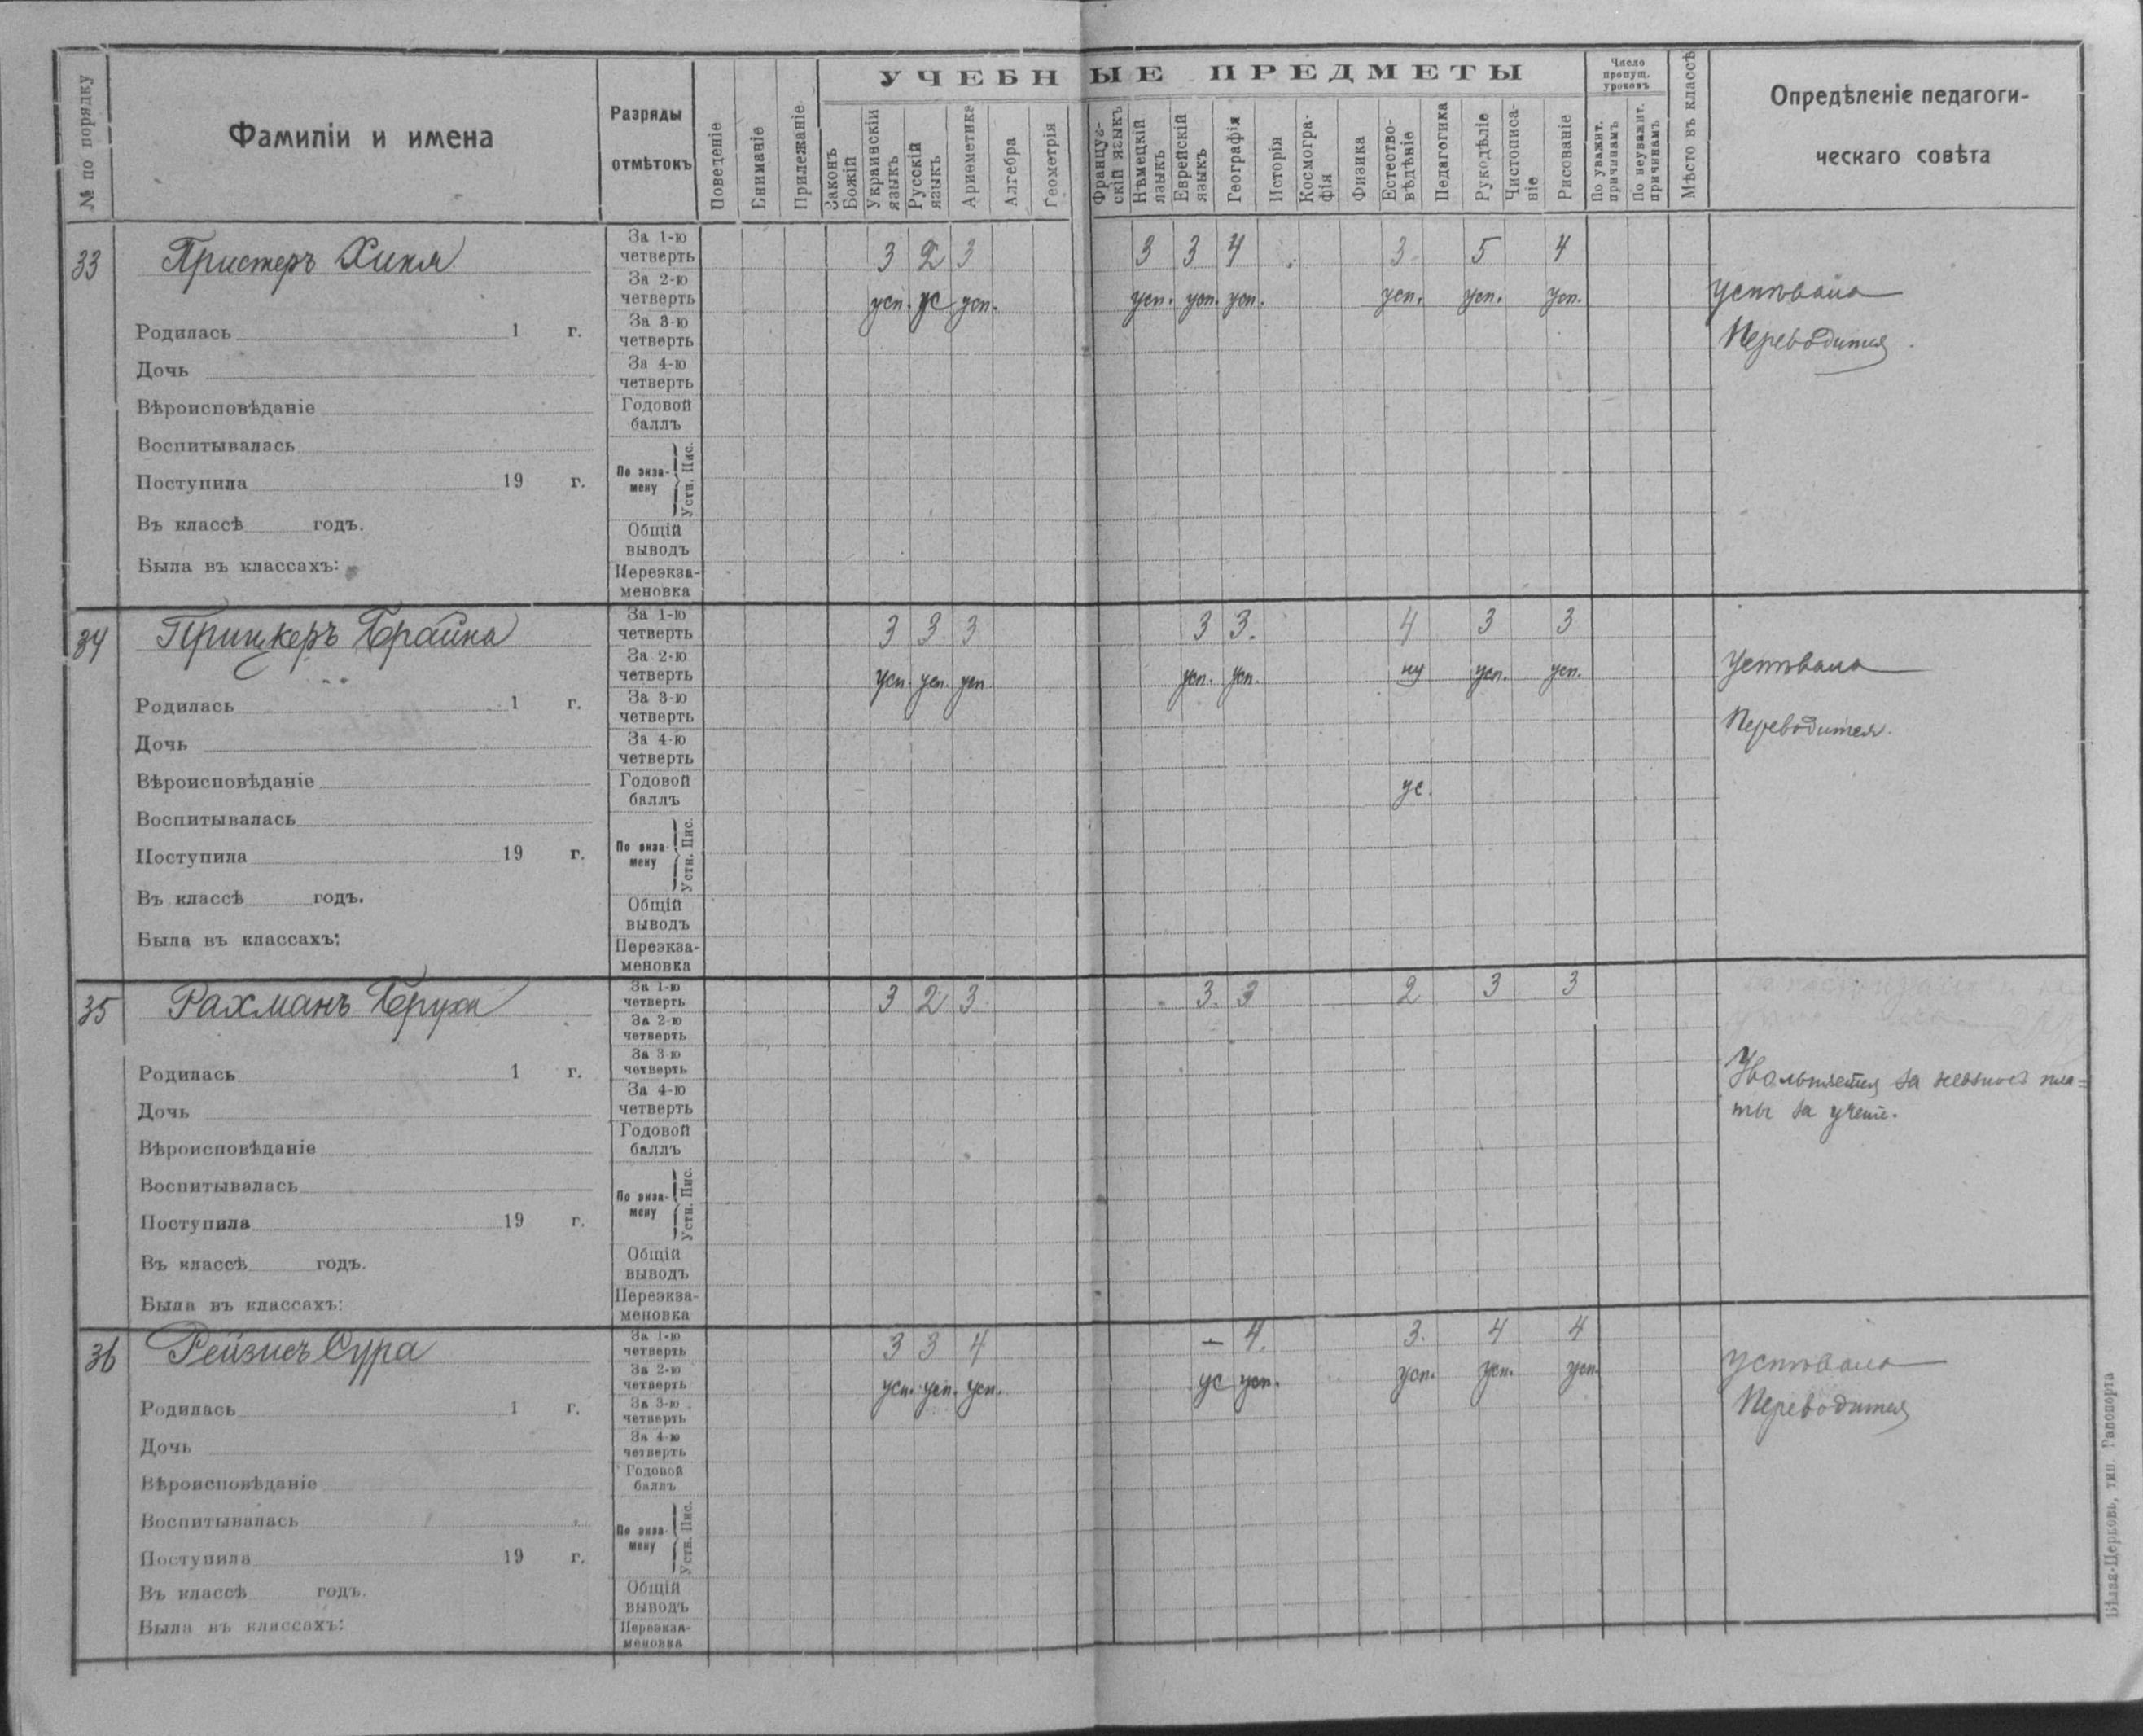 УЧЕБНЫЕ ПРЕДМЕТЫ
№ по порядку
Фамиліи и имена
Разряды отмѣтокъ
Поведеніе
Вниманіе
Прилежаніе
Законъ Божій
Украинскій языкъ
Русскій языкъ
Ариѳметика
Алгебра
Геометрія
Француз-скій языкъ
Нѣмецкій языкъ
Еврейскій языкъ
Географія
Исторія
Космогра-фія
Физика
Естество-вѣдѣніе
Педагогика
Рукодѣліе
Чистописа-ніе
Рисованіе
Число пропущ. уроковъ
По уважит. причинамъ
По неуважит. причинамъ
Мѣсто въ классѣ
Опредѣленіе педагоги-
ческаго совѣта
33 Пристеръ Хиня
За 1-ю четверть 3 2 3 3 3 4 3 5 4
За 2-ю четверть усп. ус усп. усп. усп. усп. усп. усп. усп.
успѣвала
Переводится.
За 3-ю четверть
За 4-ю четверть
Годовой баллъ
По экза-мену Устн. Пис.
Общій выводъ
Переэкза-меновка
Родилась 1 г.
Дочь
Вѣроисповѣданіе
Воспитывалась
Поступила 19 г.
Въ классѣ годъ.
Была въ классахъ:
34 Прицкеръ Брайна
За 1-ю четверть 3 3 3 3 3. 4 3 3
За 2-ю четверть усп. усп. усп. усп. усп. ну усп. усп.
успѣвала
Переводится.
За 3-ю четверть
За 4-ю четверть
Годовой баллъ ус.
По экза-мену Устн. Пис.
Общій выводъ
Переэкза-меновка
Родилась 1 г.
Дочь
Вѣроисповѣданіе
Воспитывалась
Поступила 19 г.
Въ классѣ годъ.
Была въ классахъ:
35 Рахманъ Бруха
За 1-ю четверть 3 2 3 3. 3 2 3 3
За 2-ю четверть
За 3-ю четверть
За 4-ю четверть
Годовой баллъ
По экза-мену Устн. Пис.
Общій выводъ
Переэкза-меновка
Увольняется за невзносъ пла=
ты за учені.
Родилась 1 г.
Дочь
Вѣроисповѣданіе
Воспитывалась
Поступила 19 г.
Въ классѣ годъ.
Была въ классахъ:
36 Рейзисъ Сура
За 1-ю четверть 3 3 4 – 4. 3. 4 4
За 2-ю четверть усп. усп. усп. ус усп. усп. усп. усп.
успѣвала
Переводится
За 3-ю четверть
За 4-ю четверть
Годовой баллъ
По экза-мену Устн. Пис.
Общій выводъ
Переэкза-меновка
Родилась 1 г.
Дочь
Вѣроисповѣданіе
Воспитывалась
Поступила 19 г.
Въ классѣ годъ.
Была въ классахъ:
Бѣлая-Церковь, тип. Рапопорта